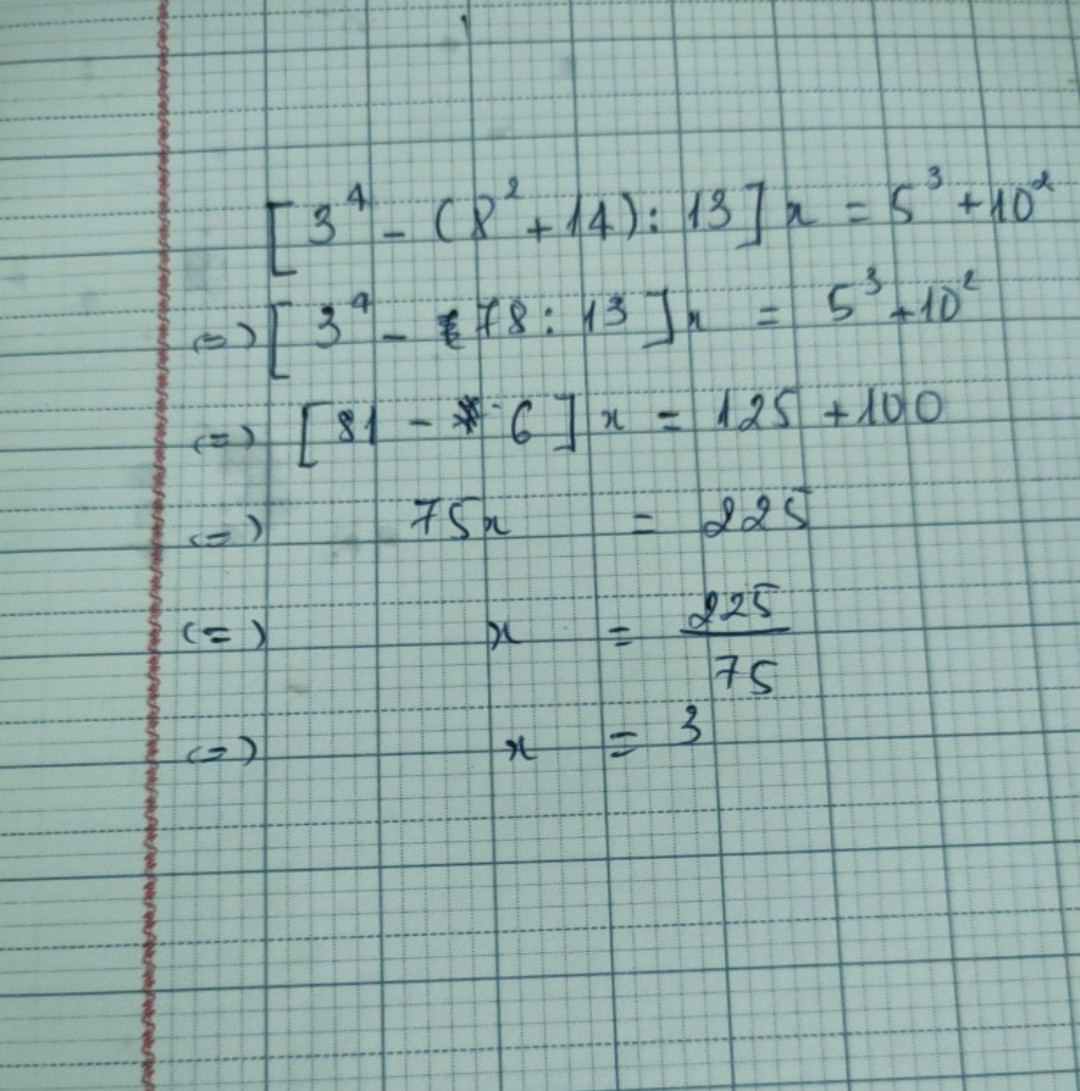 [3⁴ - (8² + 14) : 13] x = 5³ + 10²
(=) [3⁴ - 78 : 13] x = 5³ + 10²
(=) [81 - 6] x = 125 + 100
(=) 75x = 225
(=) x = 225/75
(=) x = 3